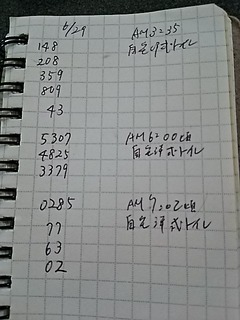 6/29
148 AM3:35
208 自宅洋式トイレ
359
809
43
5307 AM6:00頃
4825 自宅洋式トイレ
3379
0285 AM9:02頃
77 自宅洋式トイレ
63
02